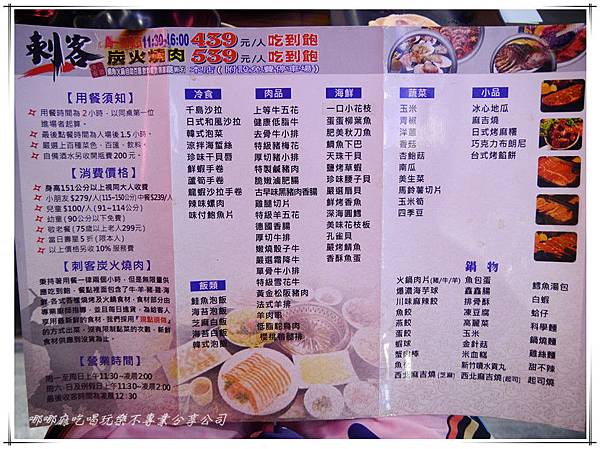 刺客
炭火燒肉
11:30~16:00 439元/人 吃到飽
539元/人 吃到飽
【用餐須知】
用餐時間為2小時，以同桌第一位
進場者起算。
最後點餐時間為入場後1.5小時。
嚴選上百種菜色、百匯、飲料。
自備酒水另收開瓶費200元。
【消費價格】
身高151公分以上視同大人收費
小朋友$279/人(115~150公分)中餐$239/人
兒童$100/人(91~114公分)
幼童(90公分以下免費)
敬老餐(75歲以上老人299元)
當日壽星5折(限本人)
以上價格另收10%服務費
【刺客炭火燒肉】
供應吃到飽
【營業時間】
周一至周日上午11:30~凌晨2:00
最後收客時間為凌晨12:30
冷食
千島沙拉
日式和風沙拉
韓式泡菜
涼拌海蜇絲
珍味干貝唇
鮮蝦手卷
蘆筍手卷
龍蝦沙拉手卷
辣味螺肉
味付鮑魚片
飯類
鮭魚泡飯
海苔泡飯
芝麻白飯
海苔白飯
韓式泡飯
肉品
上等牛五花
健康低脂牛
去骨牛小排
特級豬梅花
厚切豬小排
特製鹹豬肉
脆嫩滷肥腸
古早味黑豬肉香腸
雞腿切片
特級羊五花
德國香腸
厚切牛排
嫩燒骰子牛
嚴選霜降牛
單骨牛小排
特級雪花牛
黃金松阪豬肉
法式羊排
羊肉串
低脂鴕鳥肉
櫻桃鴨腿排
海鮮
一口小花枝
蛋蛋柳葉魚
肥美秋刀魚
鯛魚下巴
天珠干貝
鹽烤草蝦
珍味腰子貝
嚴選扇貝
鮮烤香魚
深海圓鱈
美味花枝板
孔雀貝
嚴烤鯖魚
香酥魚蛋
蔬菜
玉米
青椒
洋蔥
香菇
杏鮑菇
南瓜
美生菜
馬鈴薯切片
玉米筍
四季豆
小品
冰心地瓜
麻吉燒
日式烤麻糬
巧克力布朗尼
台式烤餡餅
鍋物
火鍋肉片(豬/牛/羊)
爆漿海芋球
川味麻辣餃
魚餃
燕餃
蛋餃
蝦球
蟹肉棒
西北麻吉燒(芝麻)
魚包蛋
鑫鑫腸
排骨酥
凍豆腐
高麗菜
玉米
金針菇
米血糕
新竹噴水貢丸
西北麻吉燒(起司)
鱈魚湯包
白蝦
蛤仔
科學麵
鍋燒麵
雞絲麵
甜不辣
起司燒
嘟嘟麻吃喝玩樂不專業分享公司